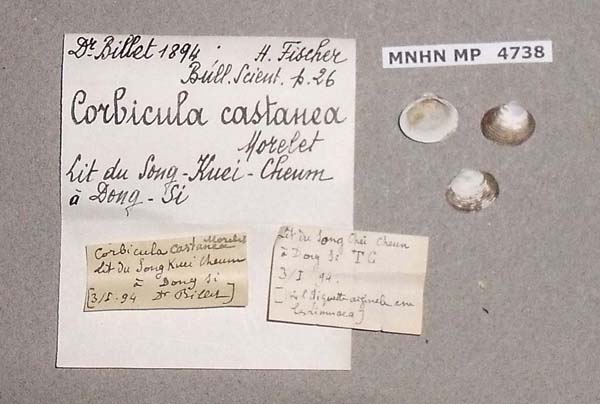 Dr. Billet 1894. H. Fischer
Bull. Scient. p. 26
Corbicula castanea
Morelet
Lit du Song-Kuei-Cheum
à Dong-Si
MNHN MP 4738
Corbicula castanea Morelet
Lit du Song Kuei Cheum
à Dong Si
[3/I-94 Dr Billet]
Lit du Song Chei Cheun
à Dong Si TC
3/I 94.